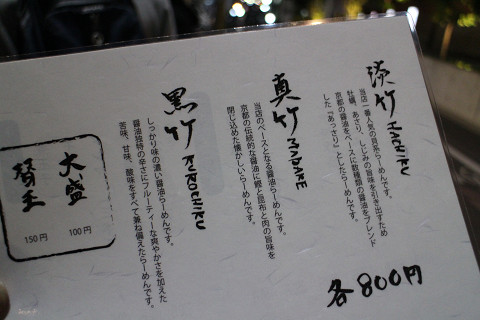 淡竹 HACHIKU
当店一番人気の貝系らーめんです。
牡蠣、あさり、しじみの旨味を引き出すため
京都の醤油をベースに数種類の醤油をブレンド
した『あっさり』としたらーめんです。
真竹 MADAKE
当店のベースとなる醤油らーめんです。
京都の伝統的な醤油に鰹と昆布と肉の旨味を
閉じ込めた懐かしいらーめんです。
黒竹 KUROCHIKU
しっかり味の濃い醤油らーめんです。
醤油独特の辛さにフルーティーな爽やかさを加えた
苦味、甘味、酸味をすべて兼ね備えたらーめんです。
各800円
大盛
100円
替玉
150円